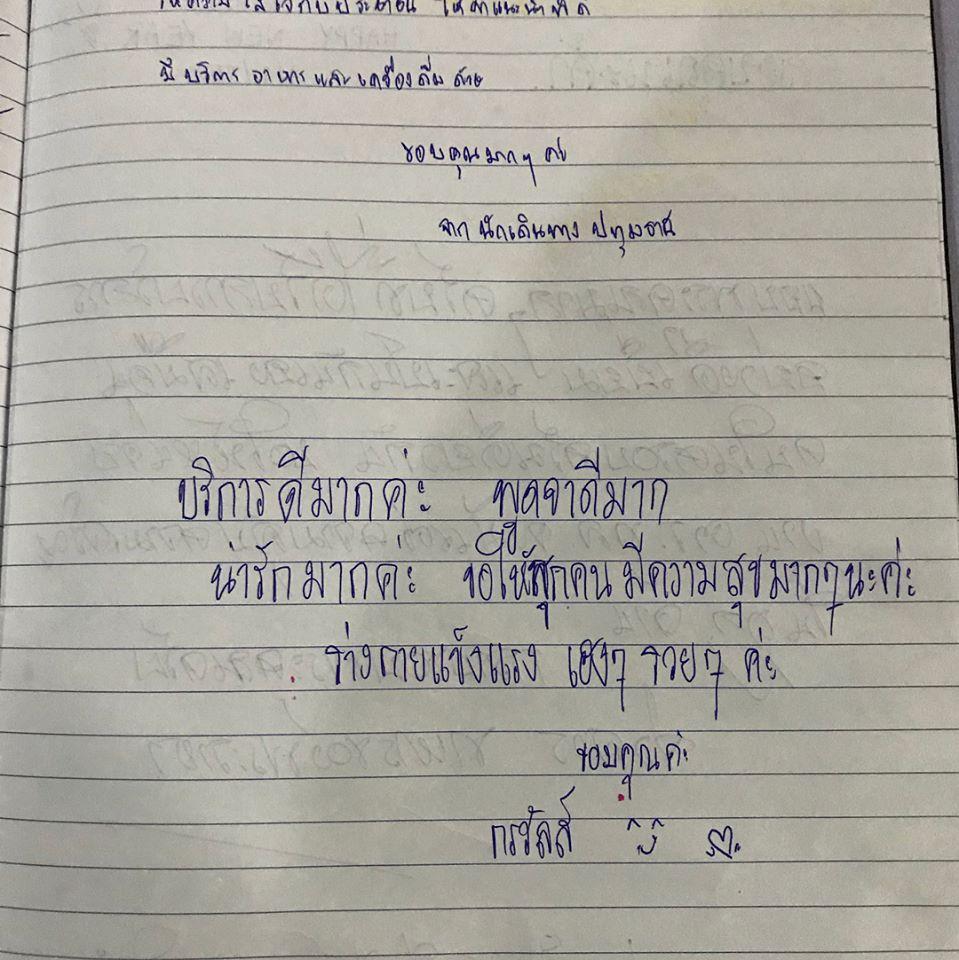 ให้ความใส่ใจกับประชาชน ให้คำแนะนำที่ดี
มีบริการ อาหารและเครื่องดื่มด้วย
ขอบคุณมากๆ ค่ะ
จาก นักเดินทาง ปทุมธานี
บริการดีมากค่ะ พูดจาดีมาก
น่ารักมากค่ะ ขอให้ทุกคนมีความสุขมากๆนะค่ะ
ร่างกายแข็งแรง เฮงๆ รวยๆ ค่ะ
ขอบคุณค่ะ